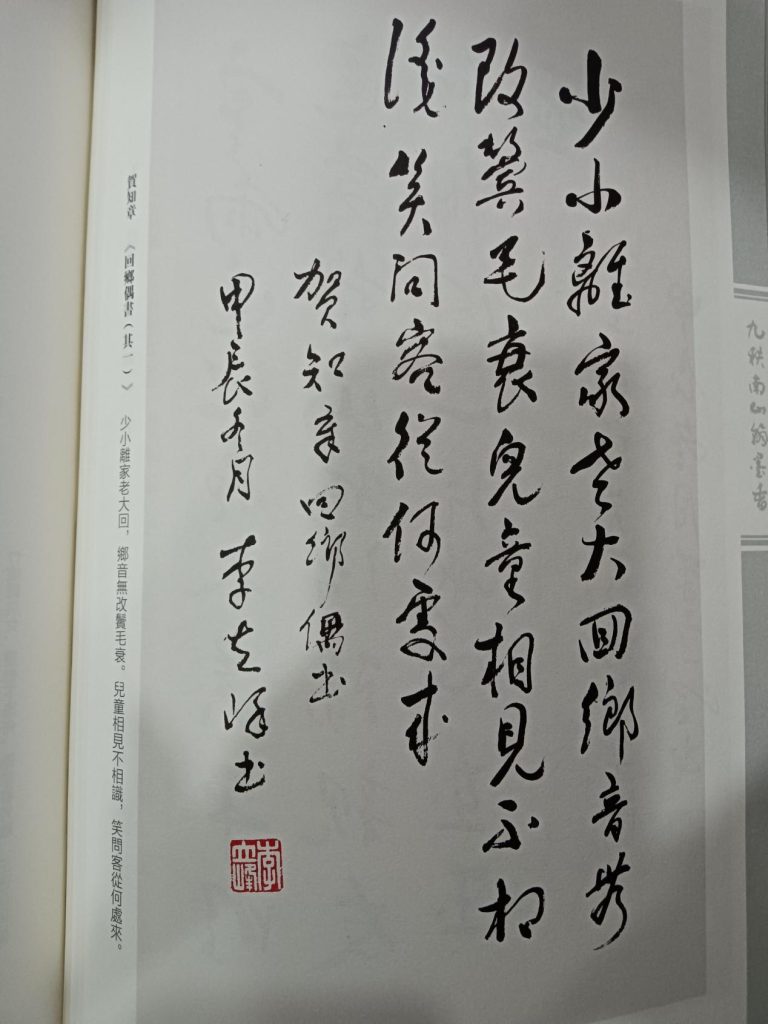 九秩南山翁墨香
少小離家老大回鄉音無
改鬢毛衰兒童相見不相
識笑問客從何處來
贺知章回鄉偶书
甲辰冬月 李书
賀知章 《回鄉偶書(其一)》 少小離家老大回,鄉音無改鬢毛衰。兒童相見不相識,笑問客從何處來。